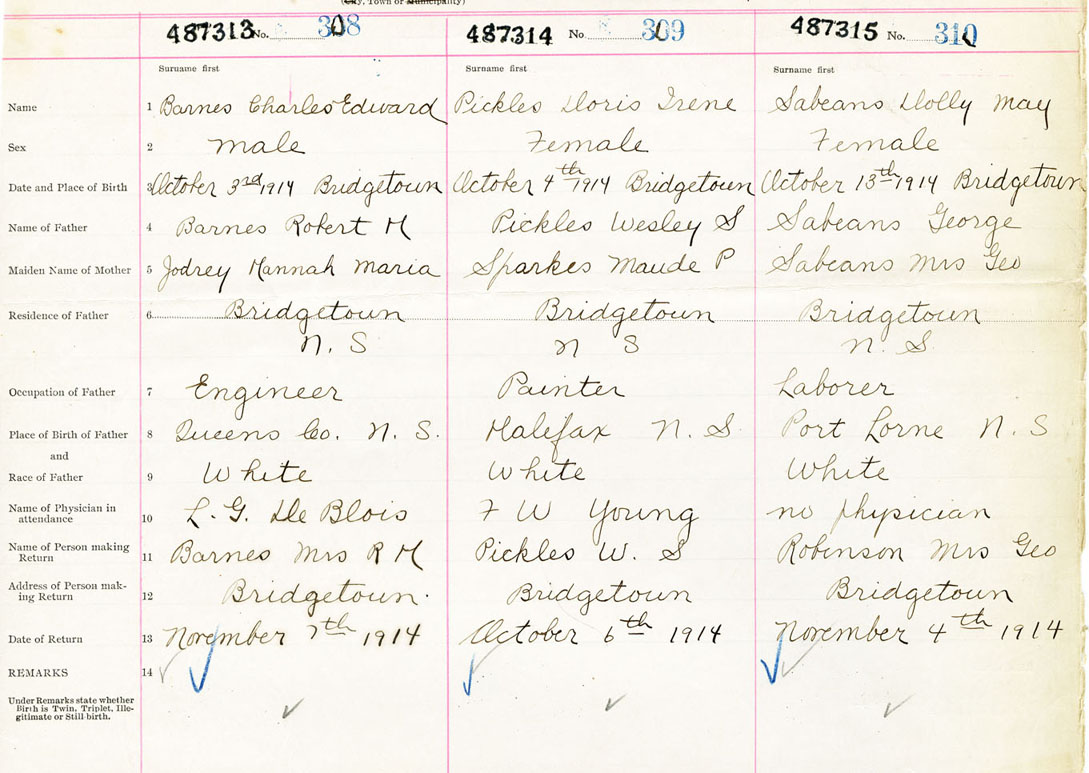 (City, Town or Municipality)
487313 No. 308 487314 No. 309 487315 No. 310
Surname first Surname first Surname first
Name 1 Barnes Charles Edward Pickles Doris Irene Sabeans Dolly May
Sex 2 Male Female Female
Date and Place of Birth 3 October 3rd 1914 Bridgetown October 4th 1914 Bridgetown October 13th 1914 Bridgetown
Name of Father 4 Barnes Robert H Pickles Wesley S Sabeans George
Maiden Name of Mother 5 Jodrey Hannah Maria Sparkes Maude P Sabeans Mrs Geo
Residence of Father 6 Bridgetown Bridgetown Bridgetown
N. S N S N. S.
Occupation of Father 7 Engineer Painter Laborer
Place of Birth of Father 8 Queens Co. N. S. Halifax N. S. Port Lorne N. S
and
Race of Father 9 White White White
Name of Physician in
attendance 10 L. G. De Blois F W Young no physician
Name of Person making
Return 11 Barnes Mrs R H Pickles W. S Robinson Mrs Geo
Address of Person mak-
ing Return 12 Bridgetown. Bridgetown Bridgetown
Date of Return 13 November 7th 1914 October 6th 1914 November 4th 1914
REMARKS 14
Under Remarks state whether
Birth is Twin, Triplet, Ille-
gitimate or Still-birth.